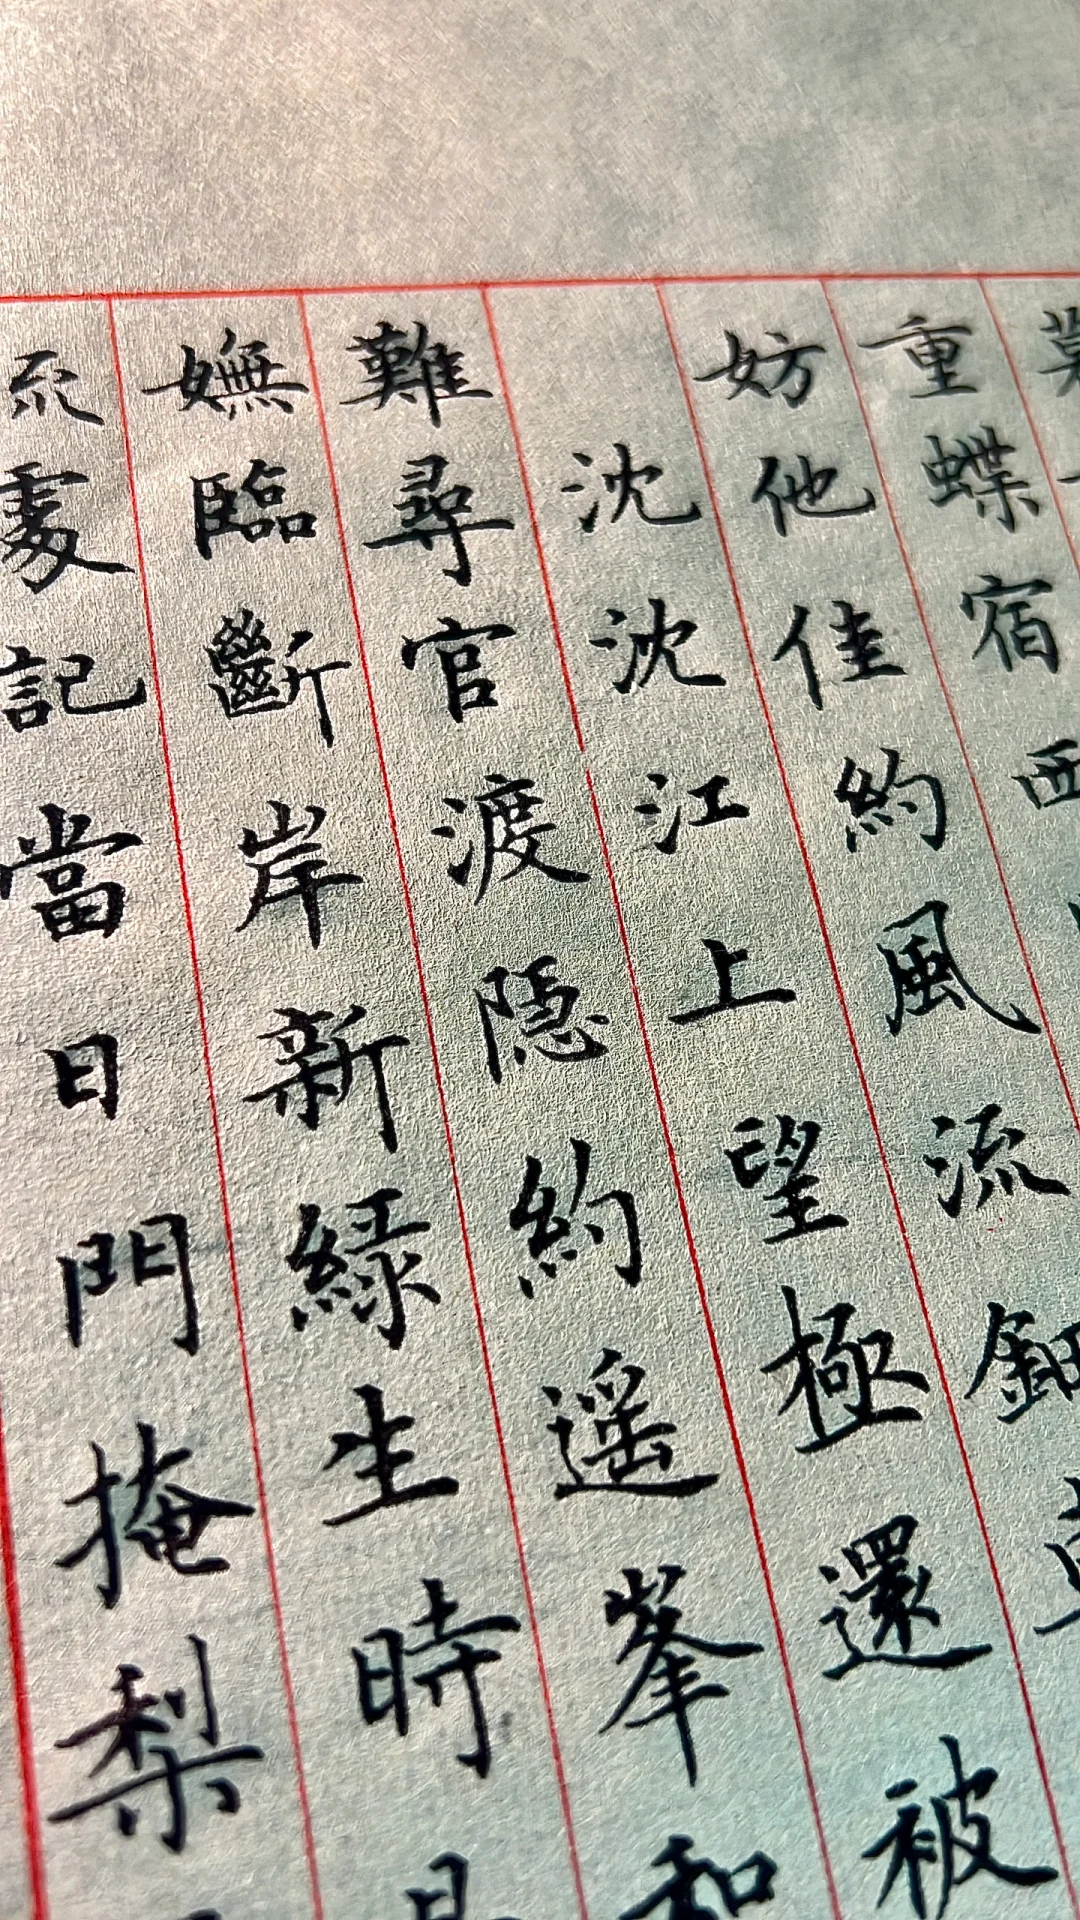 重蝶宿西
妨他佳約風流鈿
沈沈江上望極還被
難尋官渡隱約遥峯和
嫵臨斷岸新綠生時
流處記當日門掩梨